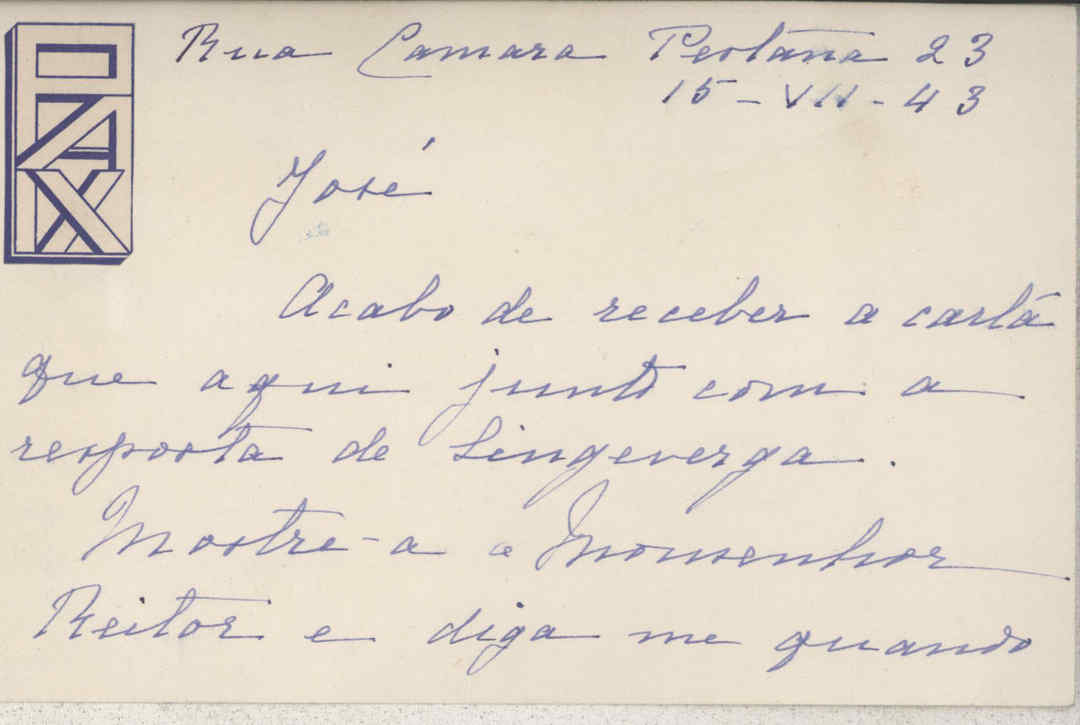 PAX
Rua Camara Pestana 23
15-VII-43
José
Acabo de receber a carta
que aqui junto com a
resposta de Singeverga.
Mostre-a a Monsenhor
Reitor e diga me quando